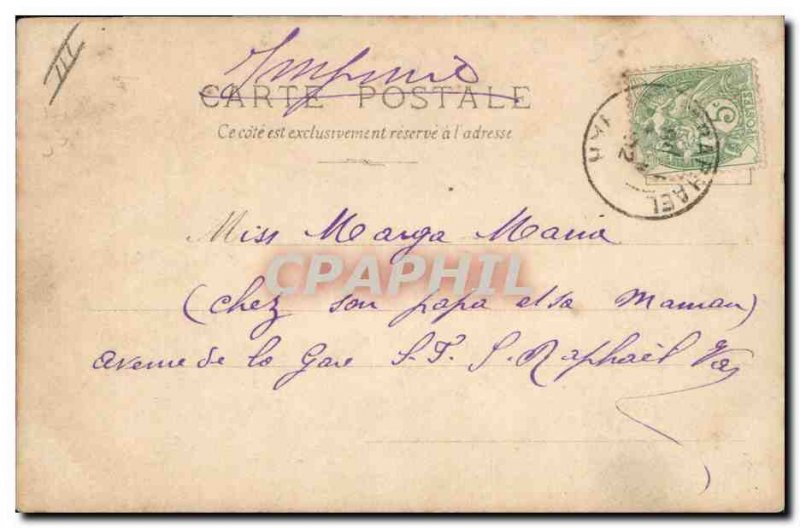 III
Imprimé
CARTE POSTALE
Ce côté est exclusivement réservé à l'adresse
RAPHAEL
VAR
5
Miss Marga Maria
CPAPHIL
(chez son papa et sa Maman)
Avenue de la Gare S. F. S. Raphaël Var